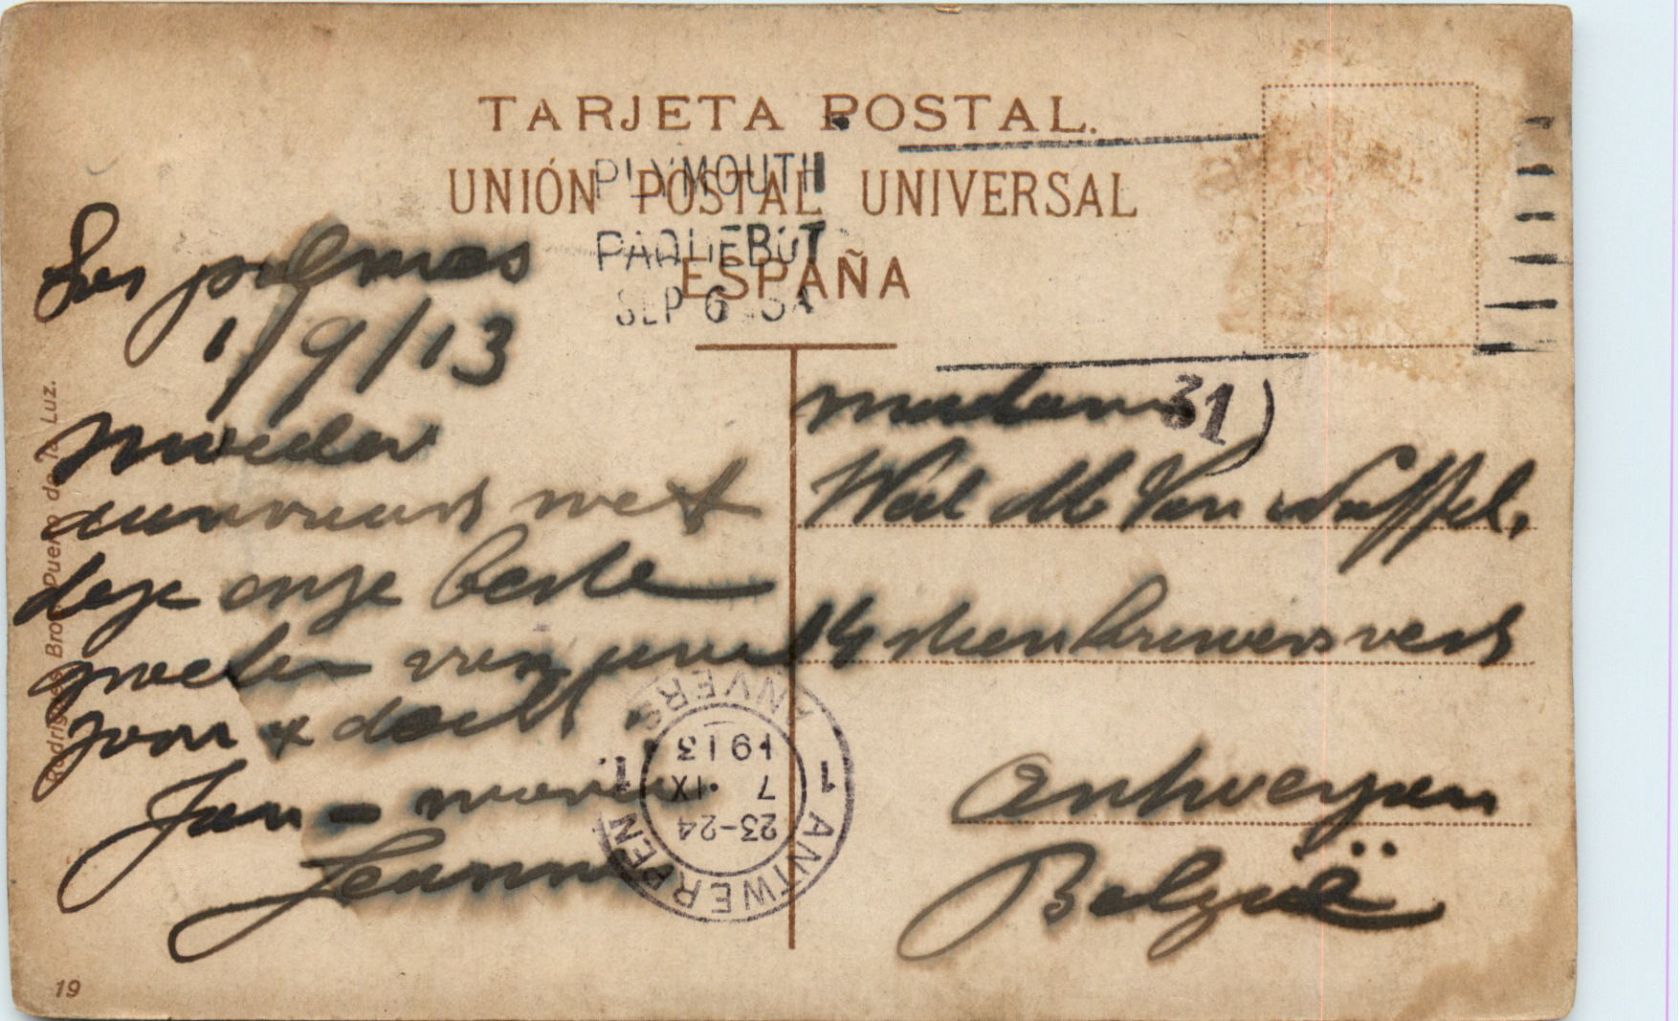 TARJETA POSTAL.
UNIÓN POSTAL UNIVERSAL
ESPAÑA
PLYMOUTH
PAQUEBOT
SEP 6
Las palmas
1/9/13
Moeder
aanvaard met
deze onze beste
groeten van uwe
zoon & docht.
Jan - maria
Jeanne
madame
31
Wed Van Nuffel,
14
Antwerpen
Belgie
1 ANTWERPEN 1
ANVERS
23-24
7 IX
1913
Rodrigues Bros Puerto de la Luz.
19